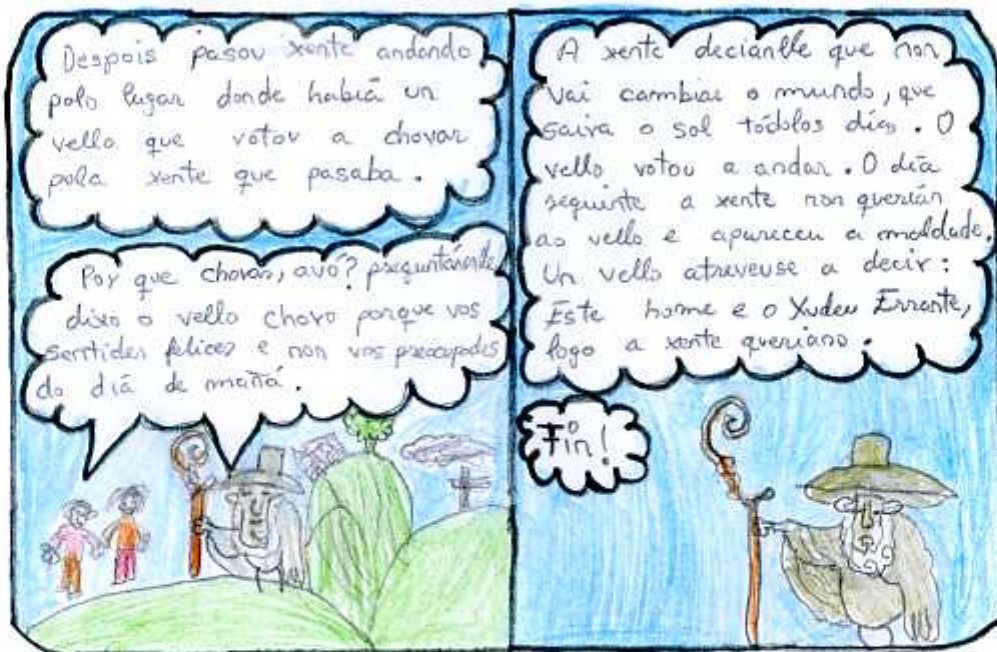 Despois pasou xente andando
polo lugar donde habiá un
vello que votou a chovar
pola xente que pasaba.
Por que choras, avó? preguntáronlle,
dixo o vello choro porque vos
sentides felices e non vos preocupades
do diá de mañá.
A xente decianlle que non
vai cambiar o mundo, que
saira o sol tódolos días. O
vello votou a andar. O día
seguinte a xente non querián
ao vello e apareceu a maldade.
Un vello atreveuse a decir:
Este home e o Xudeu Errante,
logo a xente queriano.
Fin!